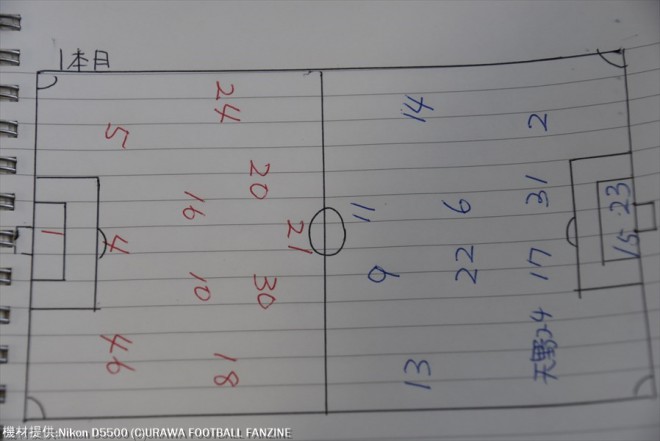 1本目
24
5
20
16
21
1
4
10
30
46
18
14
2
31
11
6
23
15
9
22
17
天野24
13
機材提供:Nikon D5500 (C)URAWA FOOTBALL FANZINE